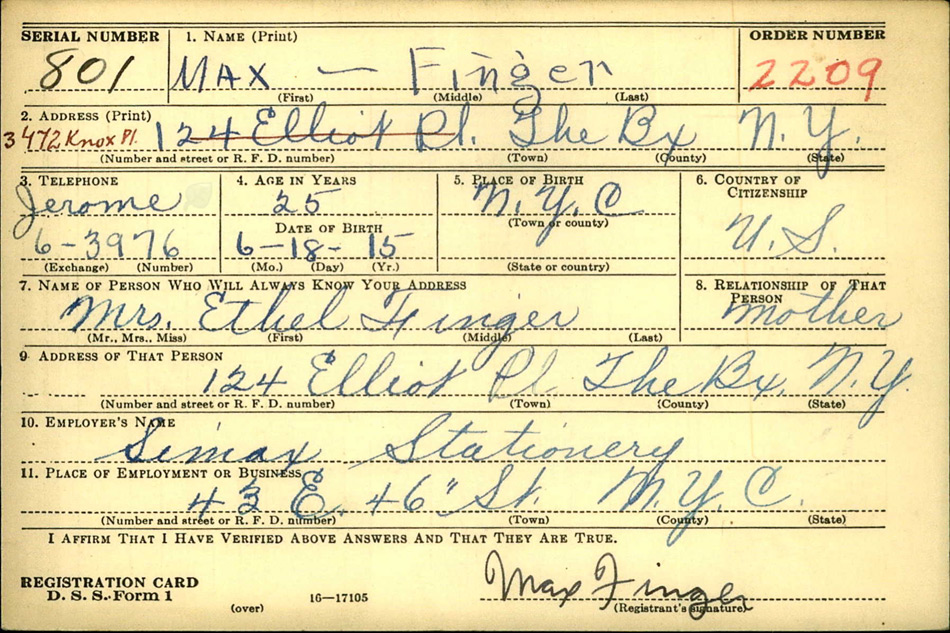 SERIAL NUMBER 1. NAME (Print) ORDER NUMBER
801 MAX — Finger 2209
(First) (Middle) (Last)
2. ADDRESS (Print)
3472 Knox Pl. 124 Elliot Pl. The Bx N.Y.
(Number and street or R. F. D. number) (Town) (County) (State)
3. TELEPHONE 4. AGE IN YEARS 5. PLACE OF BIRTH 6. COUNTRY OF CITIZENSHIP
Jerome 25 N.Y.C
DATE OF BIRTH (Town or county) U.S.
6-3976 6-18-15
(Exchange) (Number) (Mo.) (Day) (Yr.) (State or country)
7. NAME OF PERSON WHO WILL ALWAYS KNOW YOUR ADDRESS 8. RELATIONSHIP OF THAT PERSON
Mrs. Ethel Finger mother
(Mr., Mrs., Miss) (First) (Middle) (Last)
9. ADDRESS OF THAT PERSON
124 Elliot Pl The Bx. N.Y.
(Number and street or R. F. D. number) (Town) (County) (State)
10. EMPLOYER'S NAME
Simax Stationery
11. PLACE OF EMPLOYMENT OR BUSINESS
43 E. 46" St. N.Y.C.
(Number and street or R. F. D. number) (Town) (County) (State)
I AFFIRM THAT I HAVE VERIFIED ABOVE ANSWERS AND THAT THEY ARE TRUE.
REGISTRATION CARD Max Finger
D. S. S. Form 1 (over) 16—17105 (Registrant's signature)